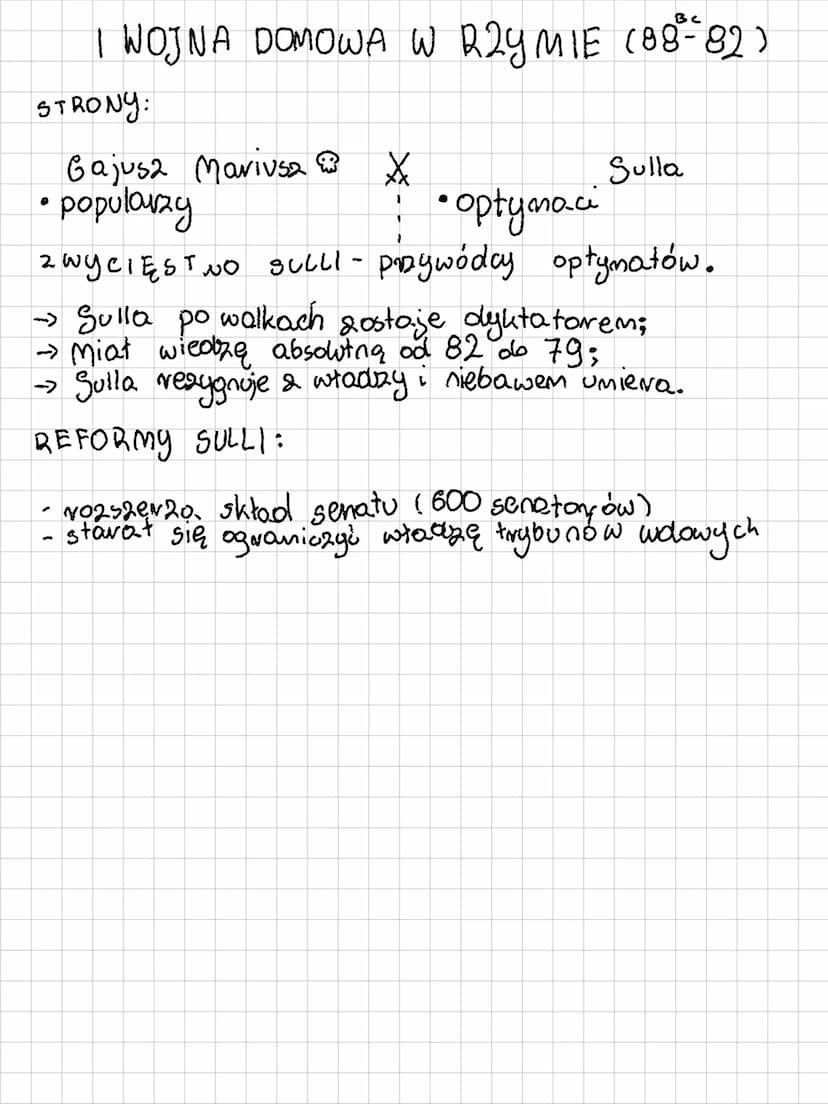 I WOJNA DOMOWA W RZYMIE (88-82) BC
STRONY:
Gajusz Mariusz Sulla
• popularzy • optymaci
ZWYCIĘSTWO SULLI - przywódcy optymatów.
→ Sulla po walkach zostaje dyktatorem;
→ Miał wiedzę absolutną od 82 do 79;
→ Sulla rezygnuje z władzy i niebawem umiera.
REFORMY SULLI:
- rozszerza skład senatu (600 senatorów)
- starał się ograniczyć władzę trybunów ludowych